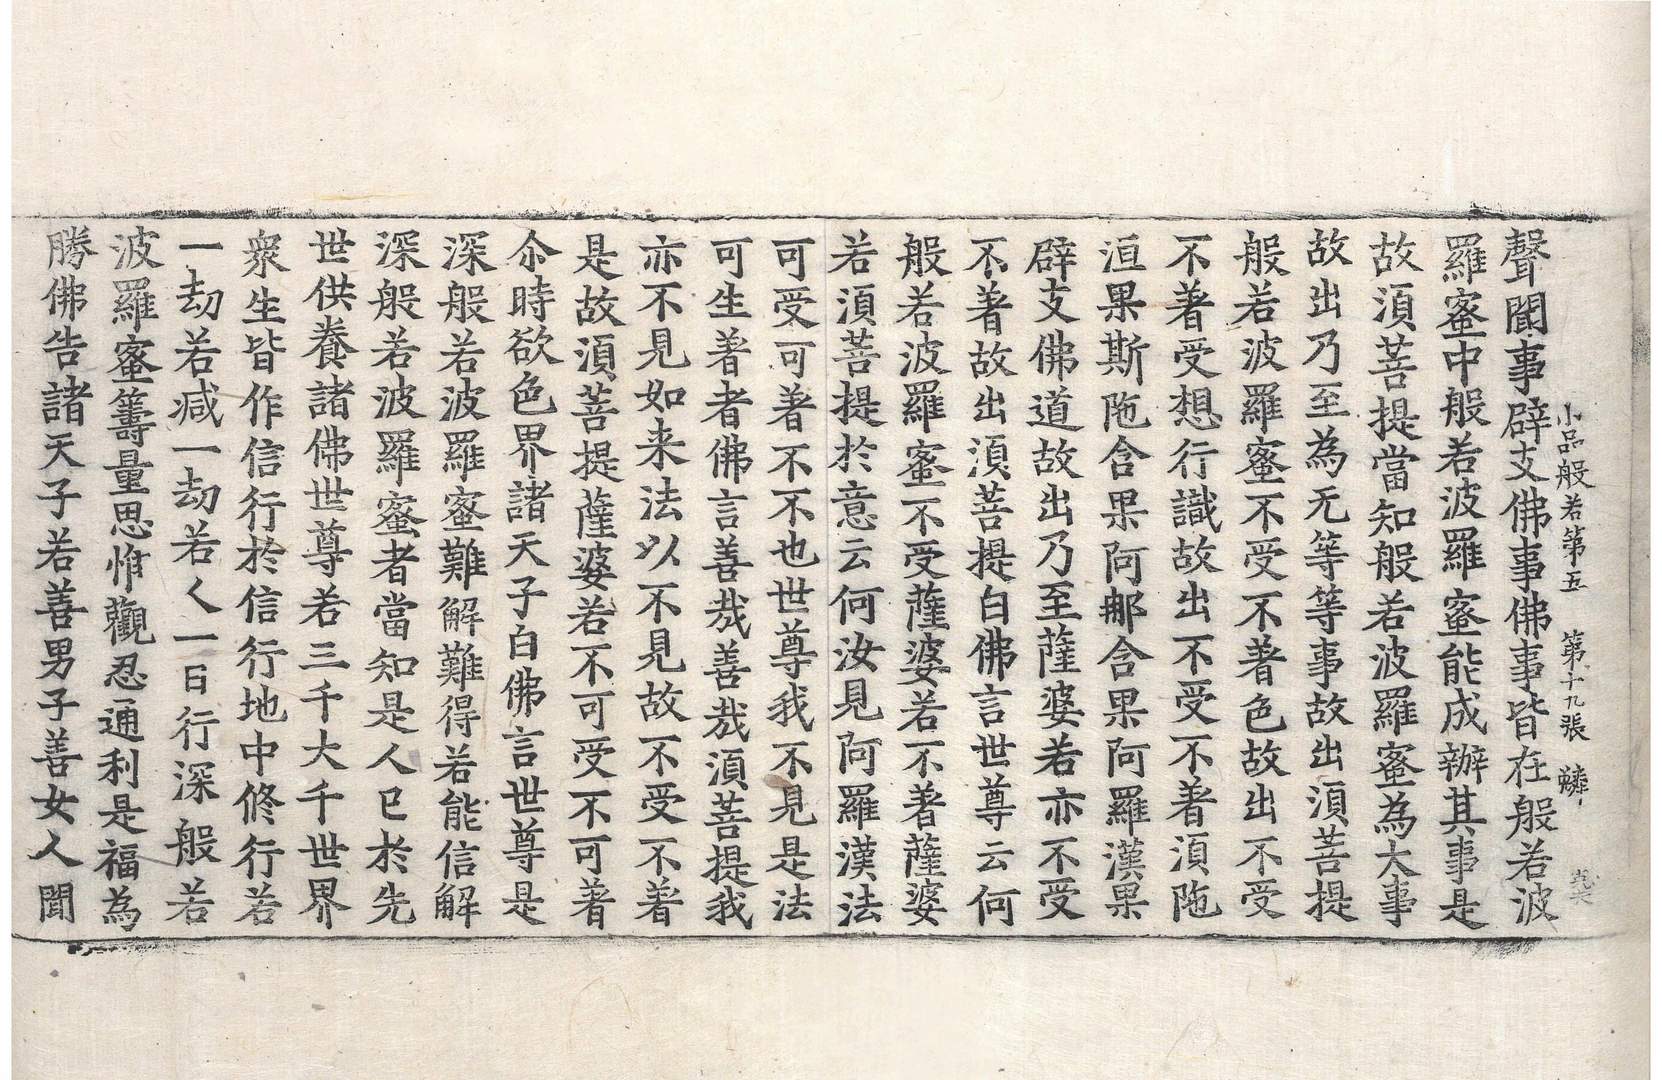 小品般若第五 第十九張 鱗
聲聞事辟支佛事佛事皆在般若波
羅蜜中般若波羅蜜能成辦其事是
故須菩提當知般若波羅蜜為大事
故出乃至為无等等事故出須菩提
般若波羅蜜不受不著色故出不受
不著受想行識故出不受不著須陁
洹果斯陁含果阿那含果阿羅漢果
辟支佛道故出乃至薩婆若亦不受
不著故出須菩提白佛言世尊云何
般若波羅蜜不受薩婆若不著薩婆
若須菩提於意云何汝見阿羅漢法
可受可著不不也世尊我不見是法
可生著者佛言善哉善哉須菩提我
亦不見如来法以不見故不受不著
是故須菩提薩婆若不可受不可著
尒時欲色界諸天子白佛言世尊是
深般若波羅蜜難解難得若能信解
深般若波羅蜜者當知是人已於先
世供養諸佛世尊若三千大千世界
衆生皆作信行於信行地中修行若
一劫若減一劫若人一日行深般若
波羅蜜籌量思惟觀忍通利是福為
勝佛告諸天子若善男子善女人聞